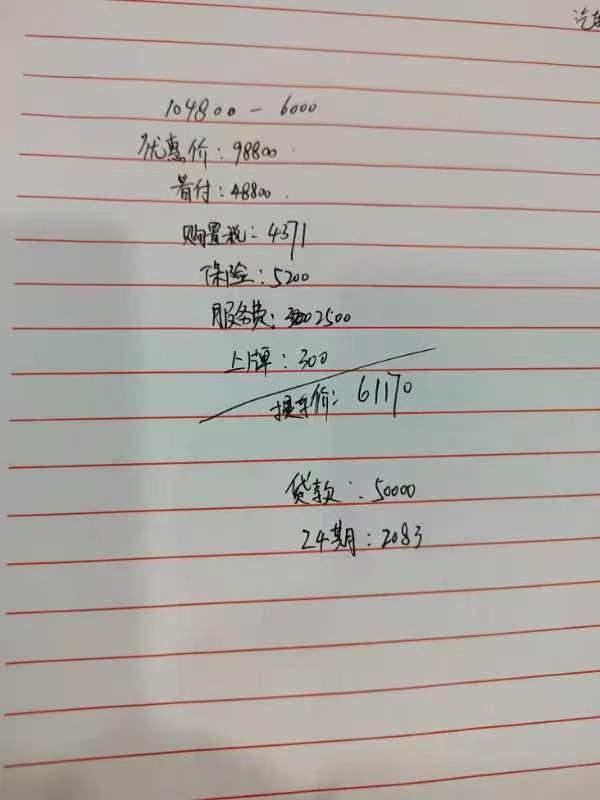 汽车
104800 - 6000
优惠价：98800
首付：48800
购置税：4371
保险：5200
服务费：2500
上牌：300
提车价：61170
贷款：50000
24期：2083